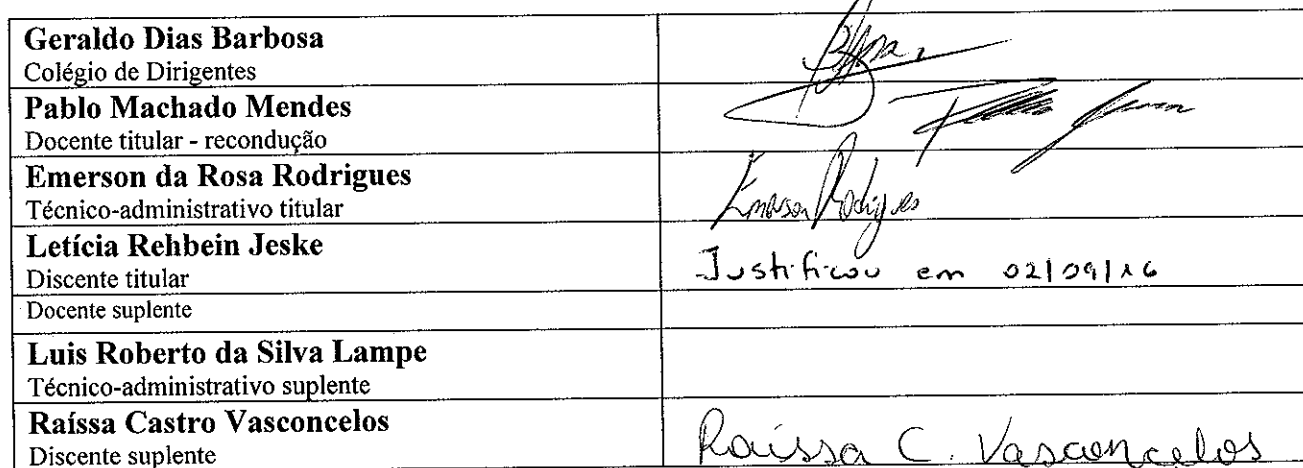 Geraldo Dias Barbosa
Colégio de Dirigentes
Pablo Machado Mendes
Docente titular - recondução
Emerson da Rosa Rodrigues
Técnico-administrativo titular
Emerson Rodrigues
Letícia Rehbein Jeske
Discente titular
Justificou em 02/09/16
Docente suplente
Luis Roberto da Silva Lampe
Técnico-administrativo suplente
Raíssa Castro Vasconcelos
Discente suplente
Raíssa C. Vasconcelos